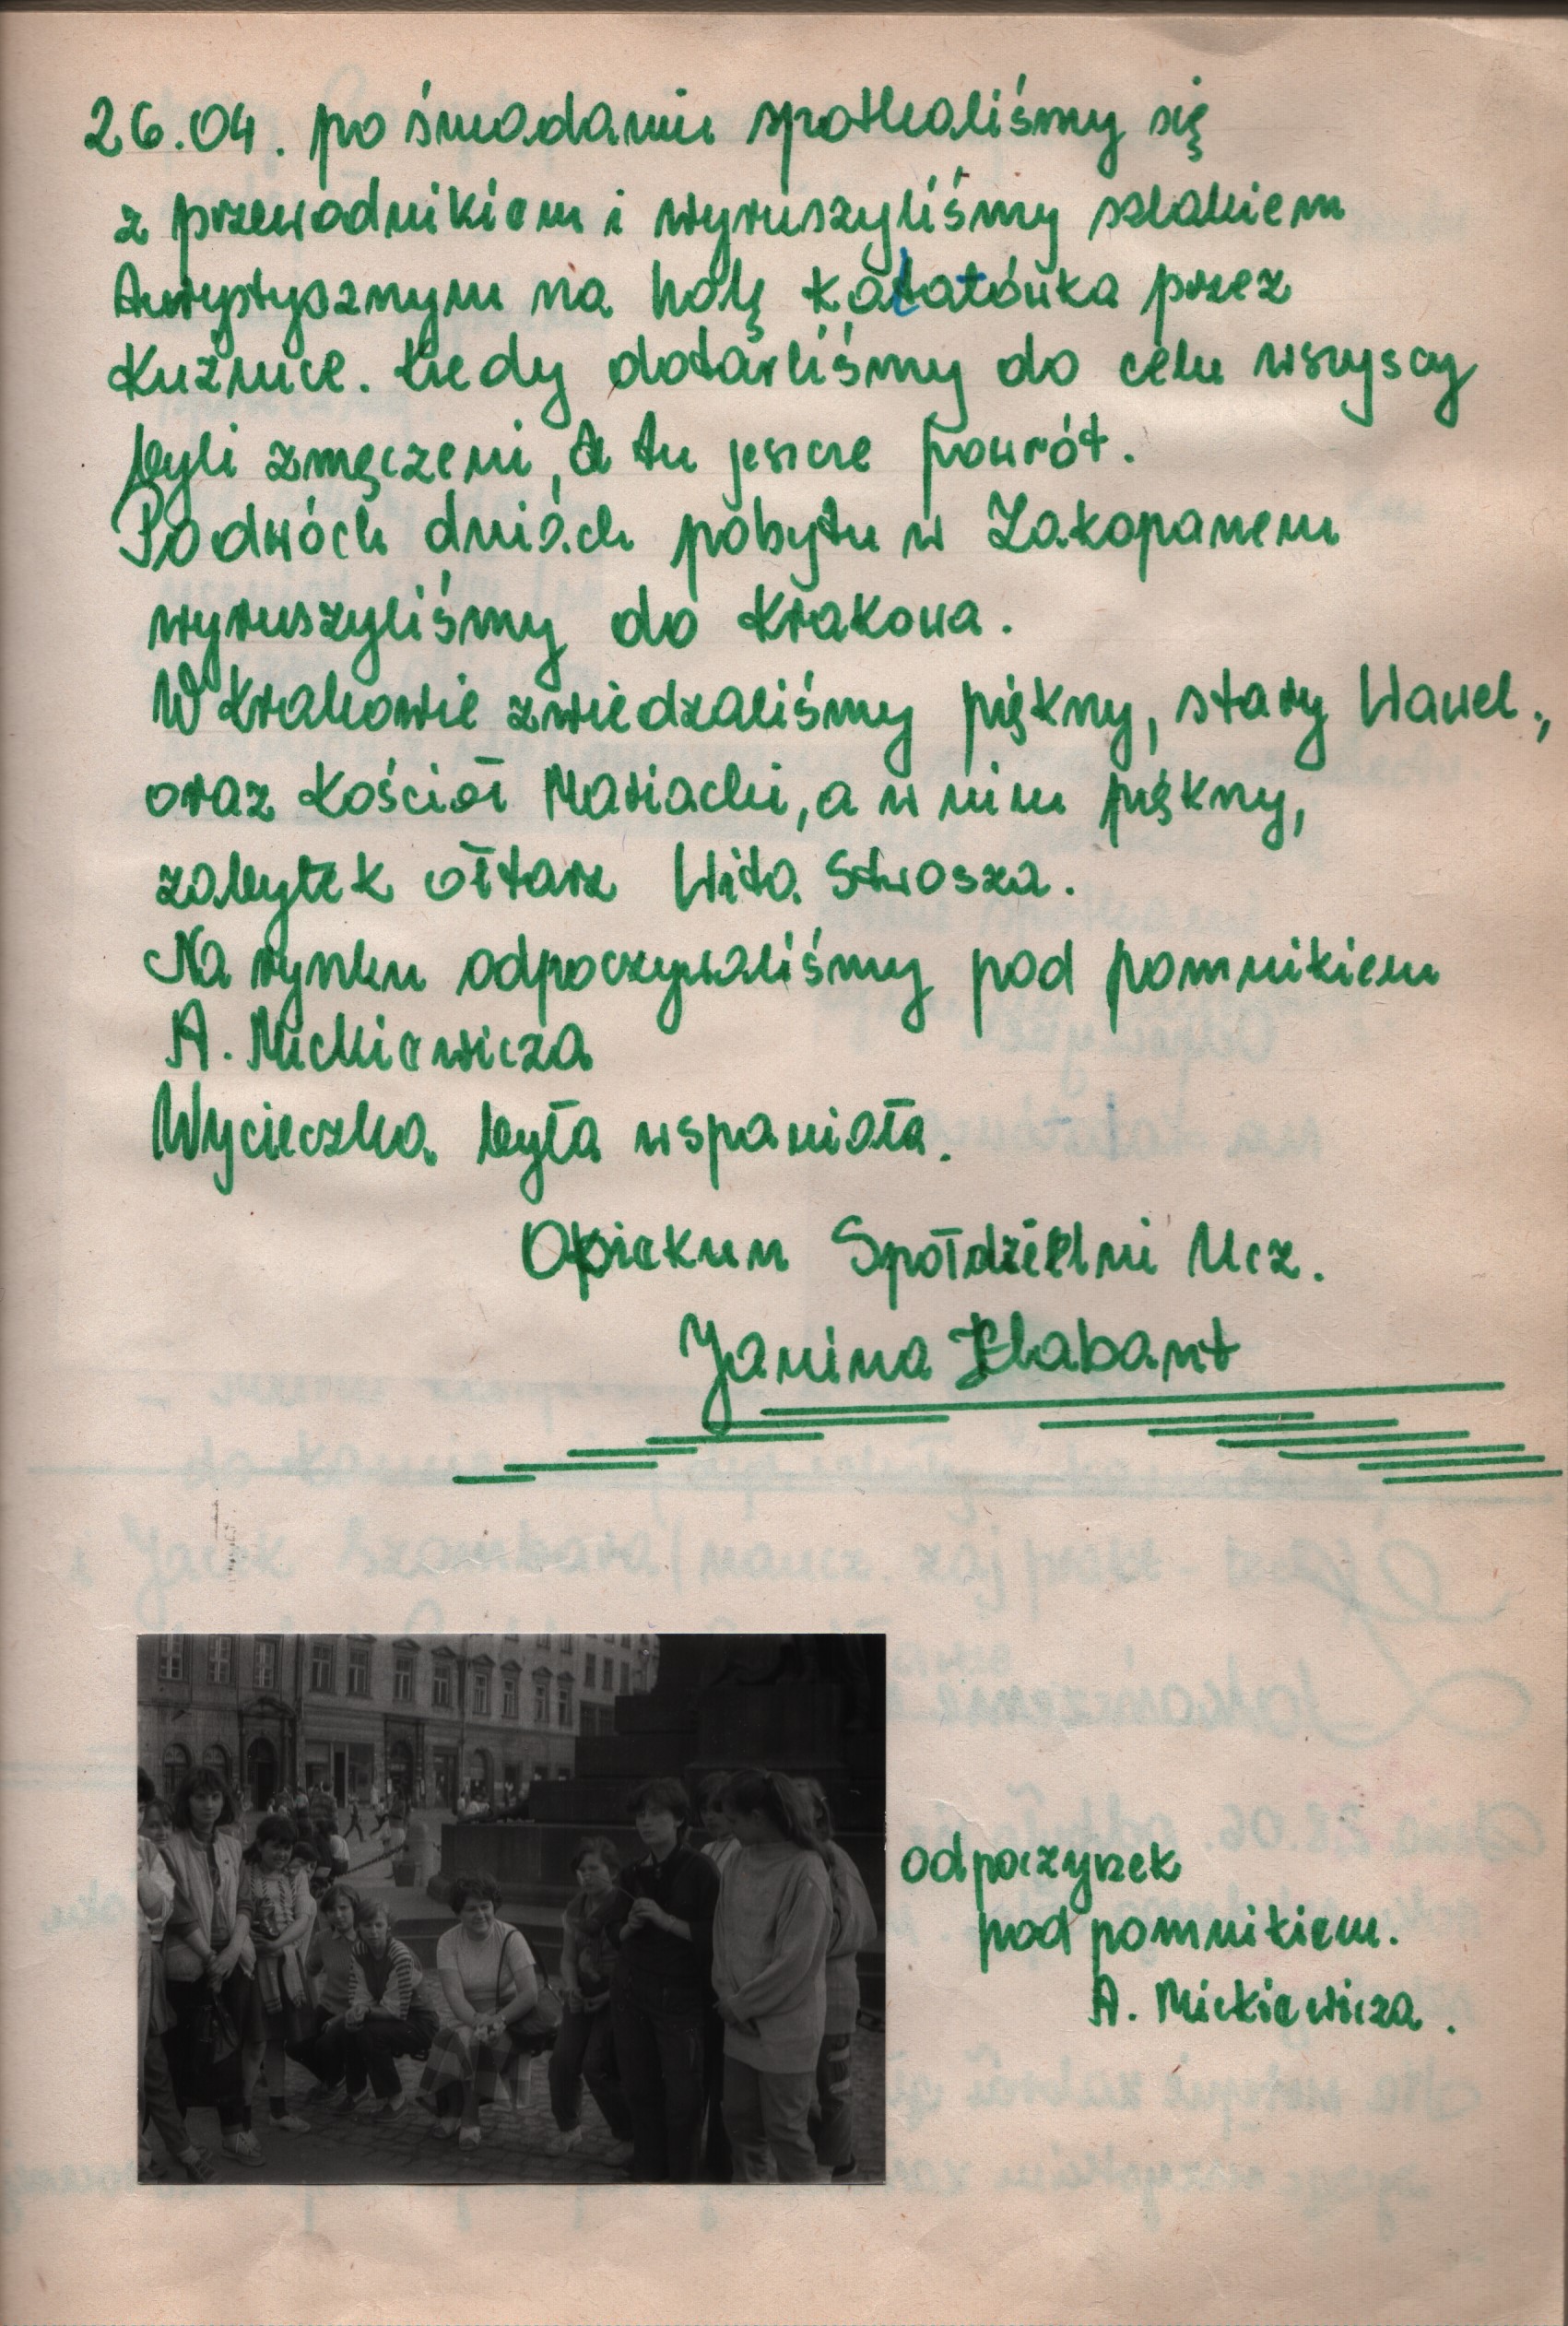 26.04. po śniadaniu spotkaliśmy się
z przewodnikiem i wyruszyliśmy szlakiem
turystycznym na halę Kalatówka przez
Kuźnice. Kiedy dotarliśmy do celu wszyscy
byli zmęczeni, a tu jeszcze powrót.
Po dwóch dniach pobytu w Zakopanem
wyruszyliśmy do Krakowa.
W Krakowie zwiedzaliśmy piękny, stary Wawel.,
oraz Kościół Mariacki, a w nim piękny,
zabytek ołtarz Wita Stwosza.
Na rynku odpoczywaliśmy pod pomnikiem
A. Mickiewicza
Wycieczka była wspaniała.
Opiekun Spółdzielni Ucz.
Janina Habant
odpoczynek
pod pomnikiem.
A. Mickiewicza.